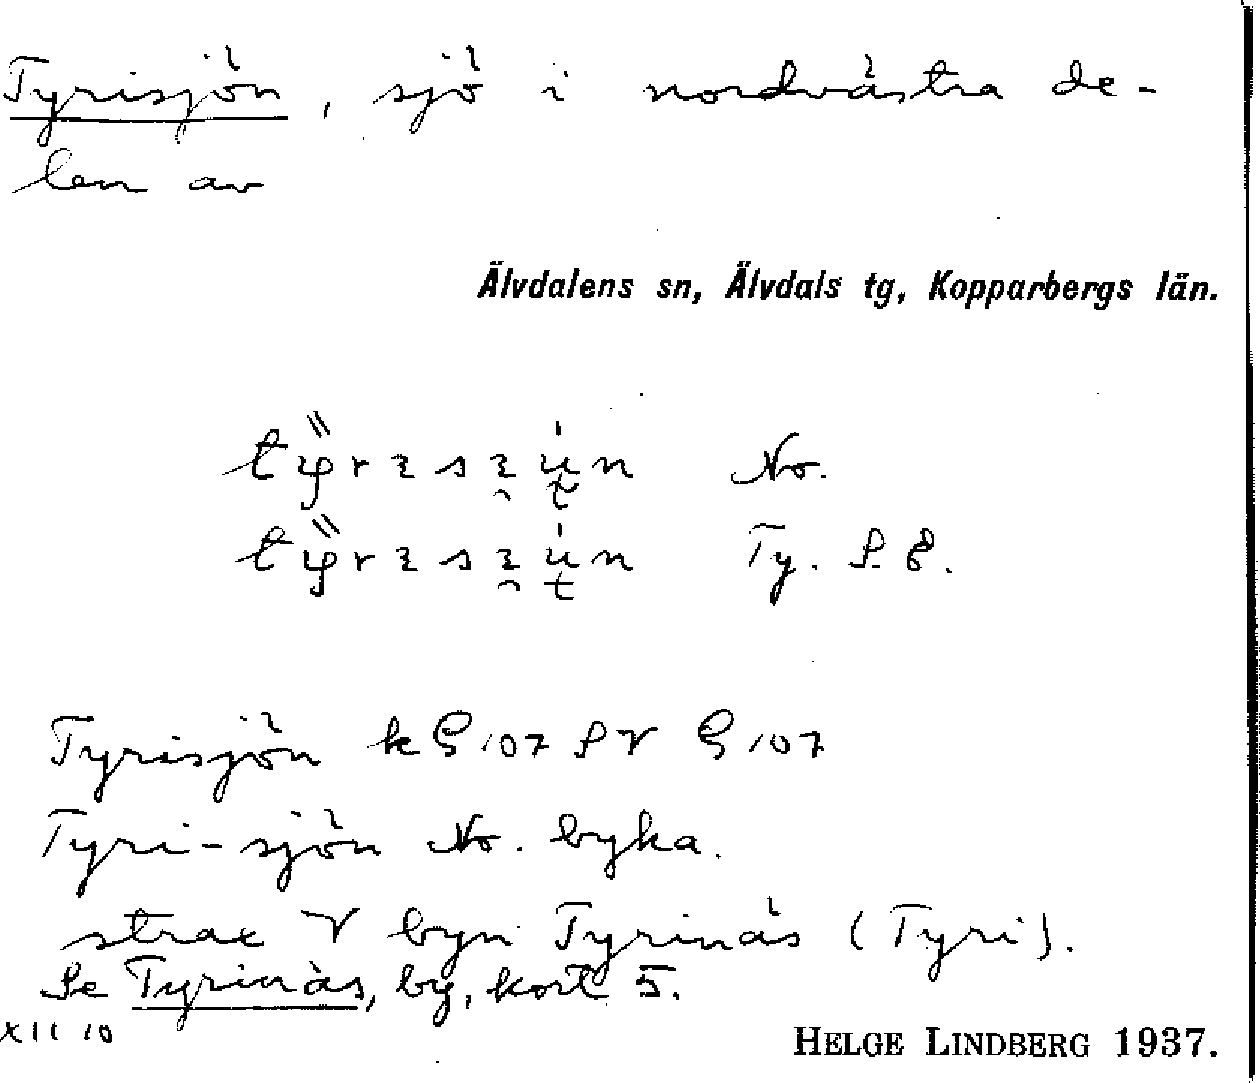 Tyrisjön, sjö i nordvästra de-
len av
Älvdalens sn, Älvdals tg, Kopparbergs län.
No.
Ty. S. E.
Tyrisjön k G 107 SV G 107
Tyri-sjön No. byka.
strax V byn Tyrinäs (Tyri).
Se Tyrinäs, by, kort 5.
XII 10
HELGE LINDBERG 1937.